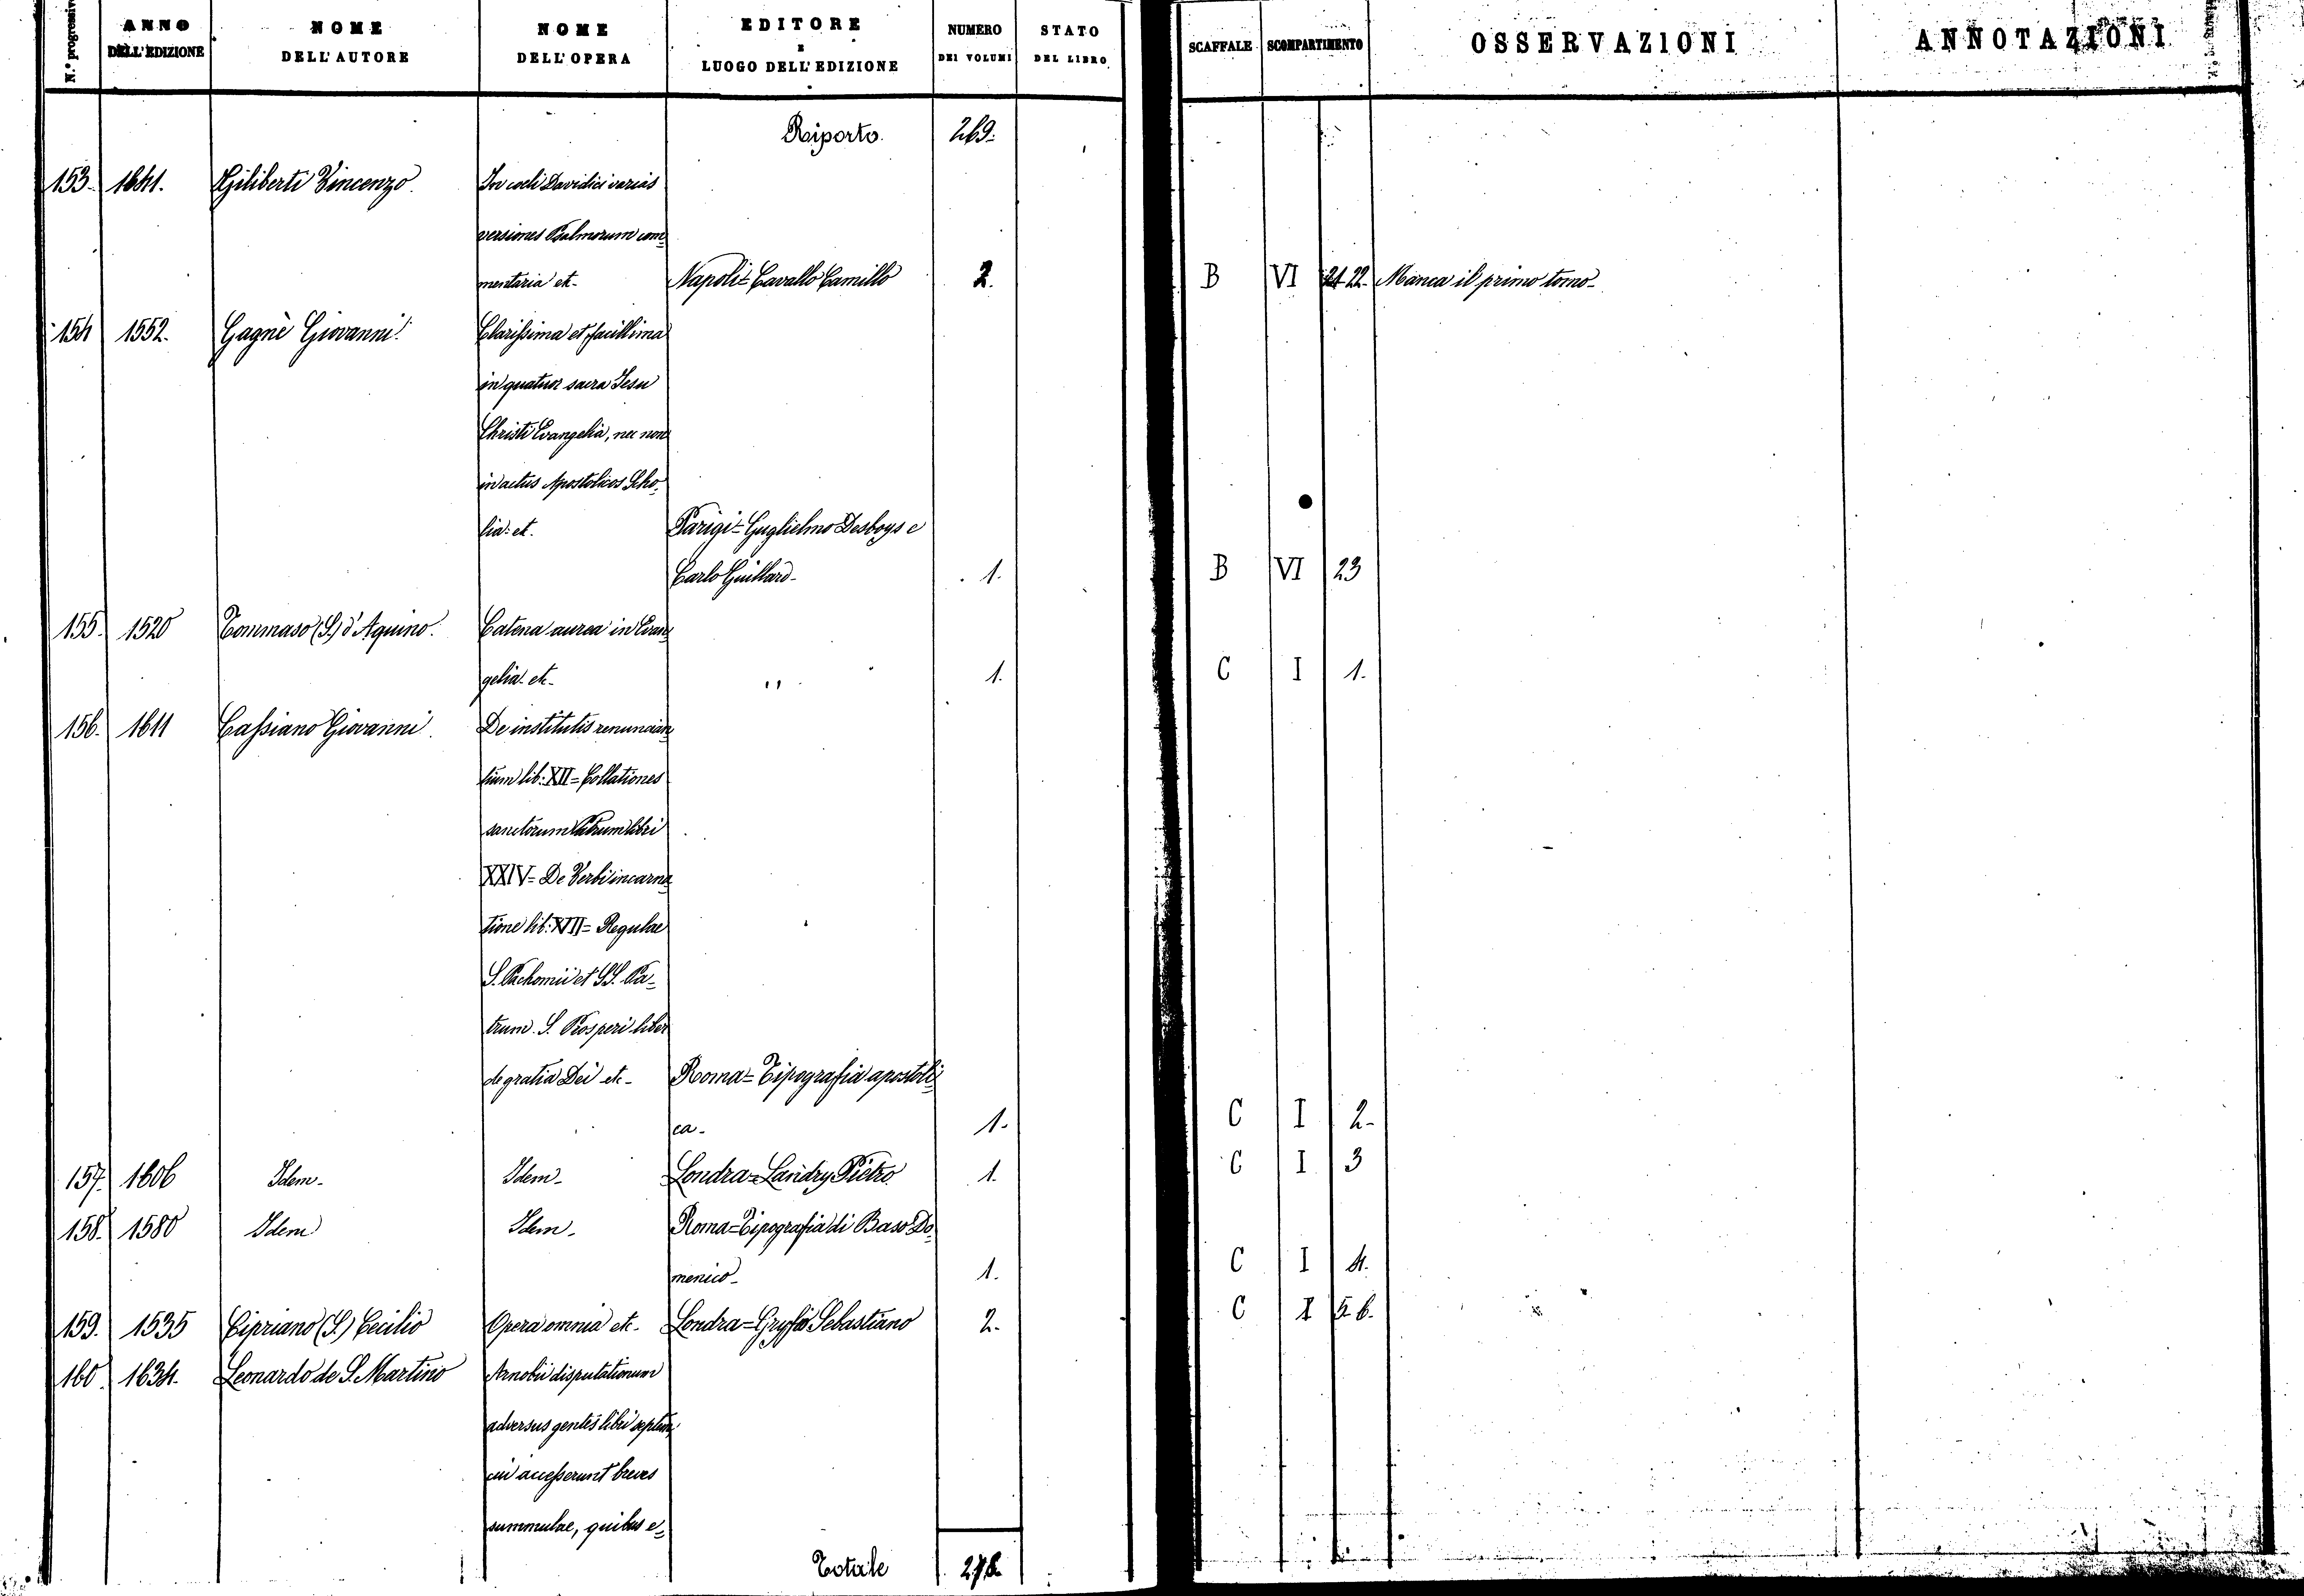 N.° progressivo
ANNO DELL'EDIZIONE
NOME DELL'AUTORE
NOME DELL'OPERA
EDITORE E LUOGO DELL'EDIZIONE
NUMERO DEI VOLUMI
STATO DEL LIBRO
SCAFFALE
SCOMPARTIMENTO
OSSERVAZIONI
ANNOTAZIONI
Riporto. 269.
153. 1641. Giliberti Vincenzo. In coeli Davidici varias
versiones Psalmorum com=
mentaria et- Napoli= Cavallo Camillo 2. B VI 21-22. Manca il primo tomo-
154 1552. Gagnè Giovanni. Clarissima et facillima
in quatuor sacra Jesu
Christi Evangelia, nec non
in actus Apostolicos Scho=
lia: et. Parigi= Guglielmo Desboys e
Carlo Guillard- 1. B VI 23
155. 1520 Tommaso (S.) d'Aquino. Catena aurea in Evan=
gelia- etc- " 1. C I 1.
156. 1611 Cassiano Giovanni. De institutis renuncian=
tium lib: XII= Collationes
sanctorum Patrum libri
XXIV= De Verbi incarna=
tione lib: VII= Regulae
S. Pachomii et SS. Pa=
trum. S. Prosperi liber
de gratia Dei etc- Roma= Tipografia apostoli=
ca- 1. C I 2-
157. 1606 Idem- Idem- Londra= Landry Pietro 1. C I 3
158. 1580 Idem Idem- Roma= Tipografia di Baso Do=
menico- 1. C I 4.
159. 1535 Cipriano (S.) Cecilio Opera omnia etc- Londra= Gryfio Sebastiano 2. C I 5-6.
160. 1634. Leonardo de S. Martino Arnobii disputationum
adversus gentes libri septem,
cui accesserunt breves
summulae, quibus e=
Totale 278.